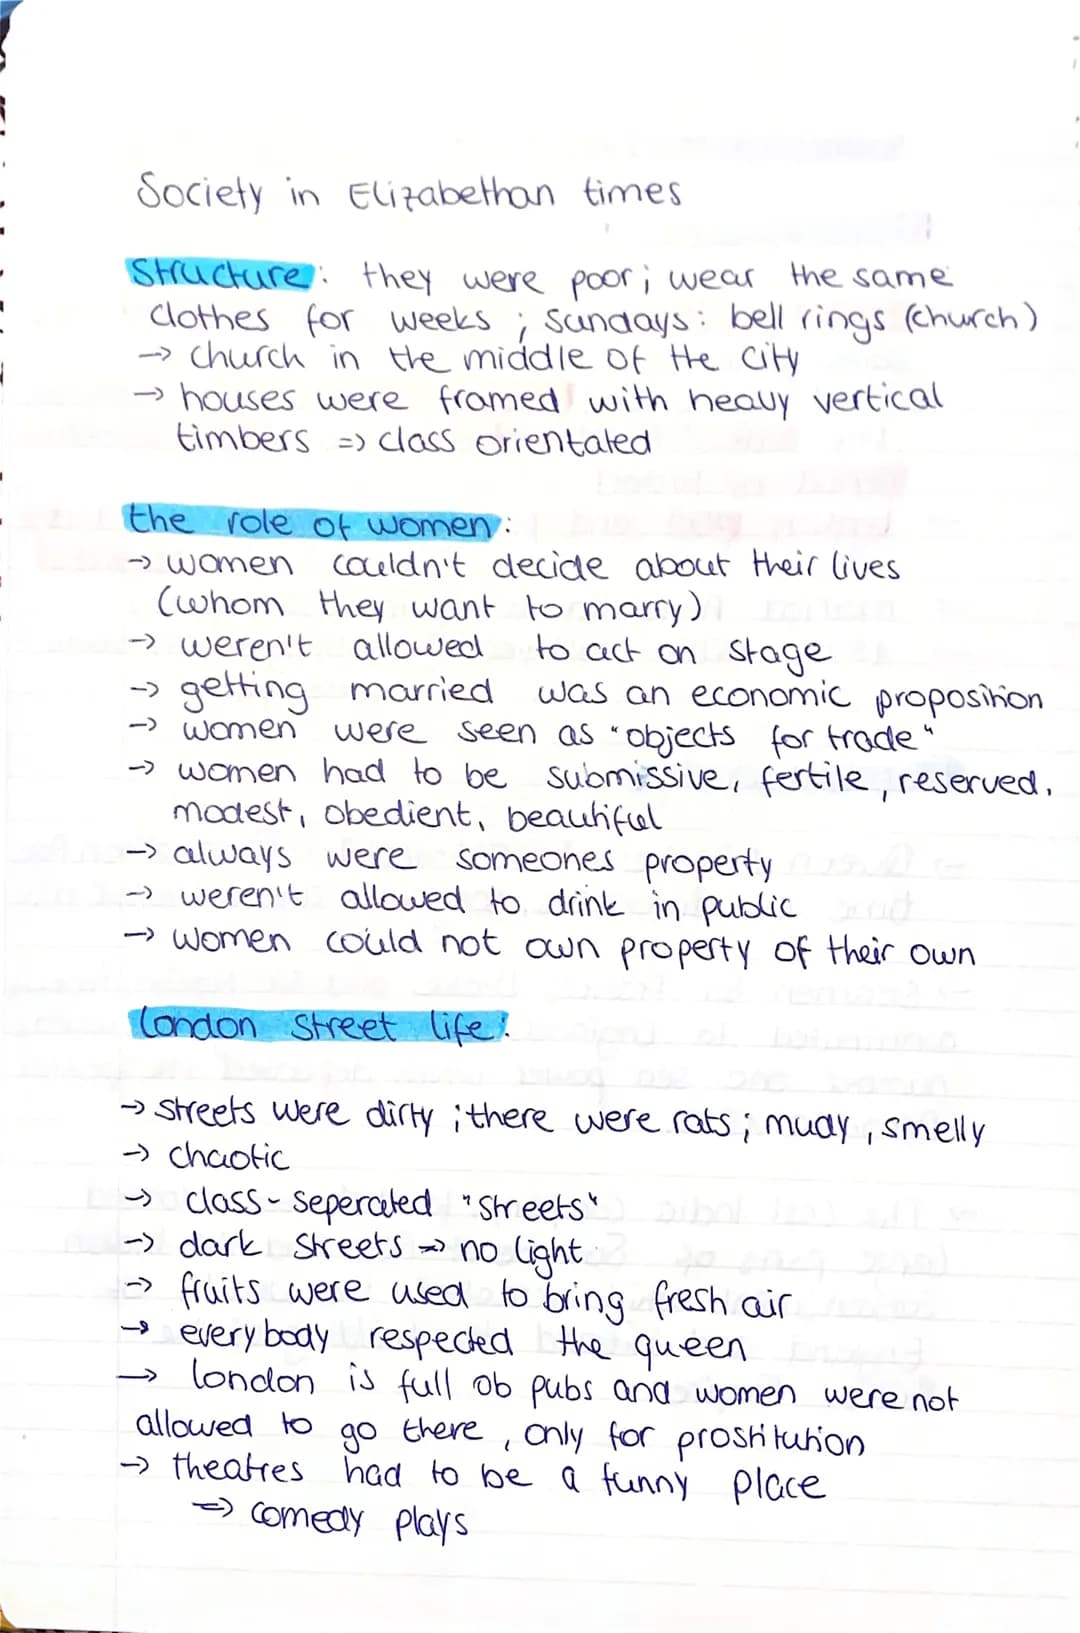 Society in Elizabethan times
Structure: they were poor; wear the same
clothes for weeks ; Sundays: bell rings (church)
→ church in the middle of the city
→ houses were framed with heavy vertical
timbers => class orientated
the role of women:
→ women couldn't decide about their lives
(whom they want to marry)
→ weren't allowed to act on stage
→ getting married was an economic proposition
→ women were seen as "objects for trade"
→ women had to be submissive, fertile, reserved,
modest, obedient, beautiful
→ always were someones property
→ weren't allowed to drink in public
→ women could not own property of their own
London street life:
→ streets were dirty ; there were rats ; mudy , smelly
→ chaotic
→ class-seperated "streets"
→ dark streets → no light
→ fruits were used to bring fresh air
→ everybody respected the queen
→ london is full ob pubs and women were not
allowed to go there , only for prostitution
→ theatres had to be a funny place
=> comedy plays